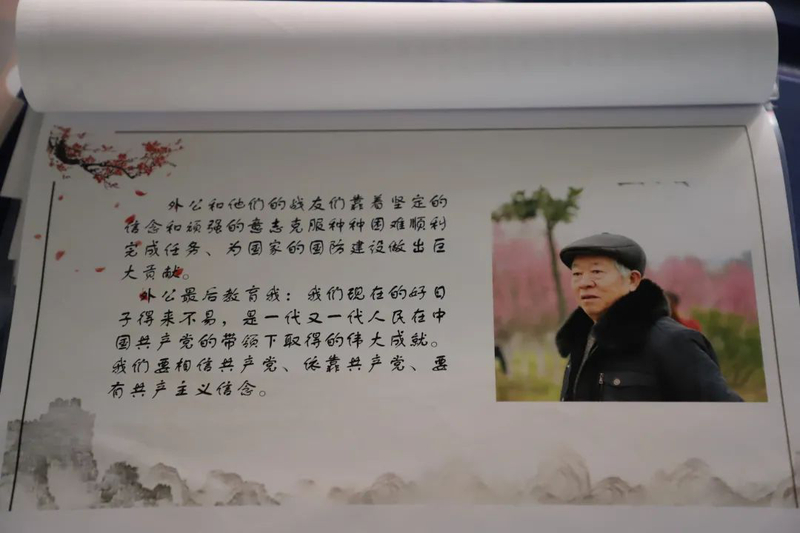 外公和他们的战友们靠着坚定的
信念和顽强的意志克服种种困难顺利
完成任务、为国家的国防建设做出巨
大贡献。
外公最后教育我：我们现在的好日
子得来不易，是一代又一代人民在中
国共产党的带领下取得的伟大成就。
我们要相信共产党、依靠共产党、要
有共产主义信念。